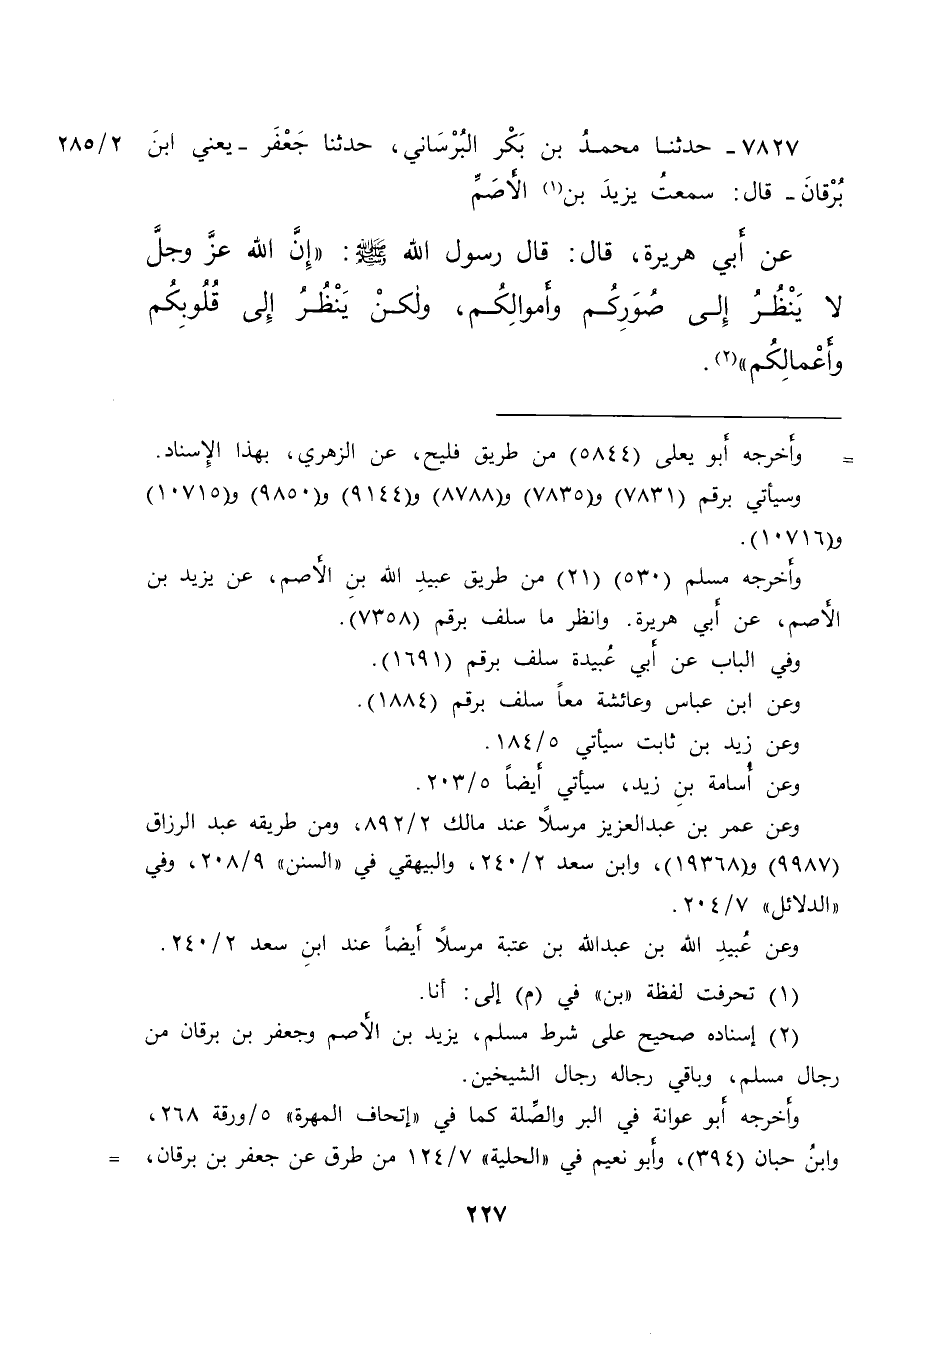 ٧٨٢٧ ـ حدثنـا محمـدُ بن بَكْر البُرْسَاني، حدثنا جَعْفَر ـ يعني ابنَ ٢٨٥/٢
بُرْقانَ ـ قال: سمعتُ يزيدَ بن(١) الأَصَمِّ
عن أَبي هريرة، قال: قال رسول الله ﷺ: «إِنَّ الله عزَّ وجلَّ
لا يَنْظُـرُ إِلـى صُوَرِكُـم وأَموالِكُـم، ولكـنْ يَنْظُـرُ إِلى قُلُوبِكُم
وأَعْمالِكُم»(٢).
= وأَخرجه أَبو يعلى (٥٨٤٤) من طريق فليح، عن الزهري، بهذا الإِسناد.
وسيأتي برقم (٧٨٣١) و(٧٨٣٥) و(٨٧٨٨) و(٩١٤٤) و(٩٨٥٠) و(١٠٧١٥)
و(١٠٧١٦).
وأَخرجه مسلم (٥٣٠) (٢١) من طريق عبيدِ الله بنِ الأَصم، عن يزيد بن
الأَصم، عن أَبي هريرة. وانظر ما سلف برقم (٧٣٥٨).
وفي الباب عن أَبي عُبيدة سلف برقم (١٦٩١).
وعن ابن عباس وعائشة معاً سلف برقم (١٨٨٤).
وعن زيد بن ثابت سيأتي ١٨٤/٥.
وعن أُسامة بنِ زيد، سيأتي أَيضاً ٢٠٣/٥.
وعن عمر بن عبدالعزيز مرسلًا عند مالك ٨٩٢/٢، ومن طريقه عبد الرزاق
(٩٩٨٧) و(١٩٣٦٨)، وابن سعد ٢٤٠/٢، والبيهقي في «السنن» ٢٠٨/٩، وفي
«الدلائل» ٢٠٤/٧.
وعن عُبيدِ الله بن عبدالله بن عتبة مرسلًا أَيضاً عند ابنِ سعد ٢٤٠/٢.
(١) تحرفت لفظة «بن» في (م) إلى: أنا.
(٢) إسناده صحيح على شرط مسلم، يزيد بن الأَصم وجعفر بن برقان من
رجال مسلم، وباقي رجاله رجال الشيخين.
وأَخرجه أَبو عوانة في البر والصِّلة كما في «إتحاف المهرة» ٥/ورقة ٢٦٨،
وابنُ حبان (٣٩٤)، وأَبو نعيم في «الحلية» ١٢٤/٧ من طرق عن جعفر بن برقان، =
٢٢٧